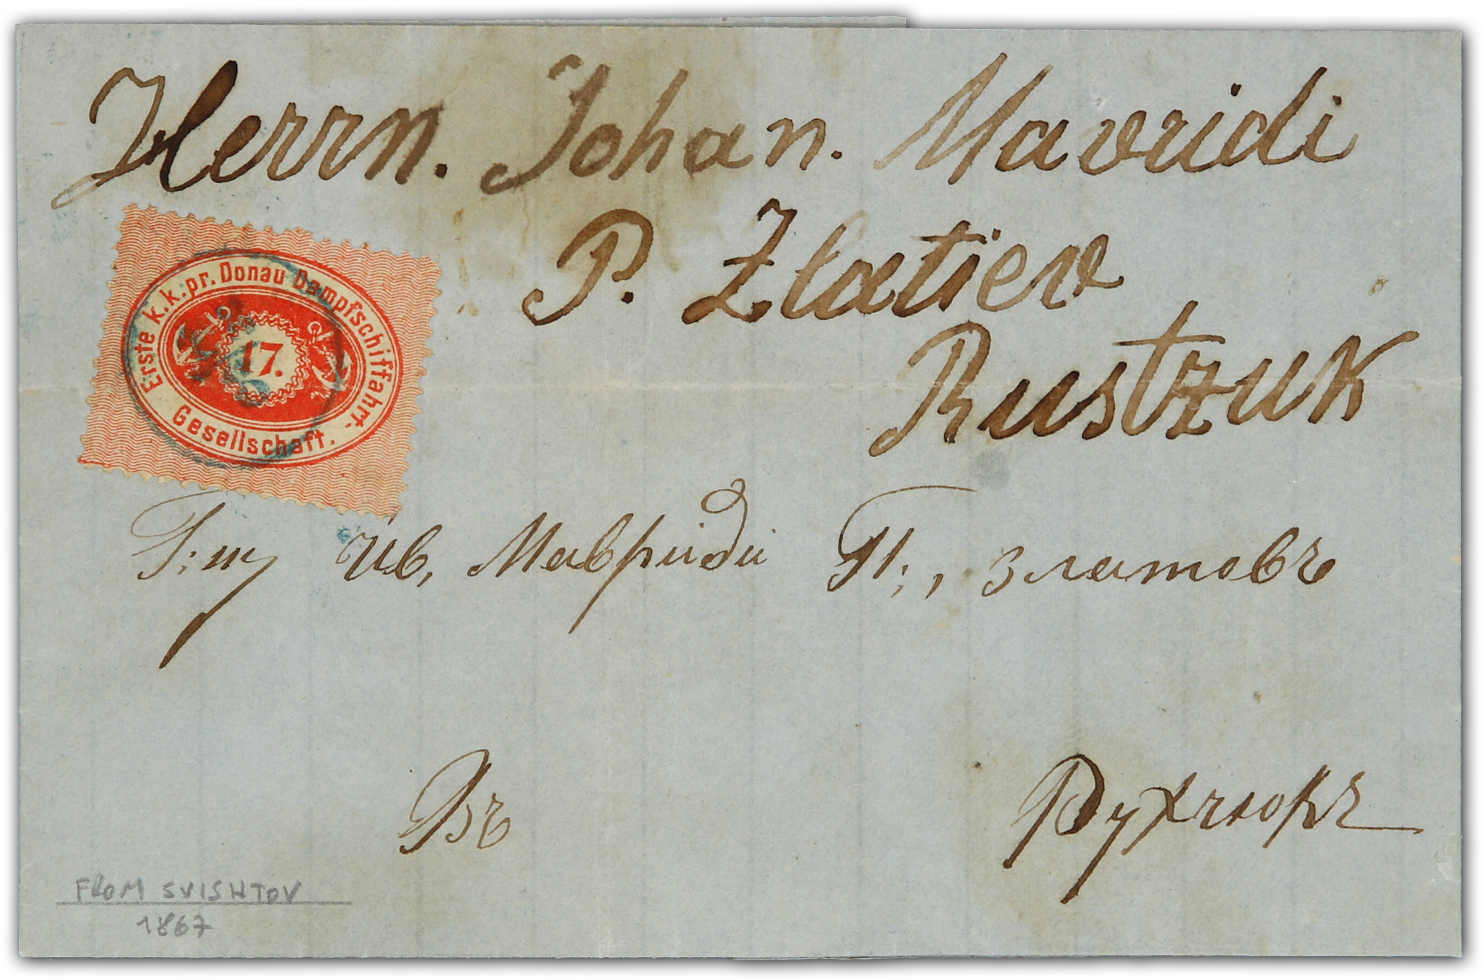 Herrn. Johan. Mavridi
P. Zlatiev
Rustzuk
Erste k.k. pr. Donau Dampfschiffahrt-
Gesellschaft.
17.
Г: ну Ив, Мавриди П:, златовъ
Въ Русчюкъ
FROM SVISHTOV
1867